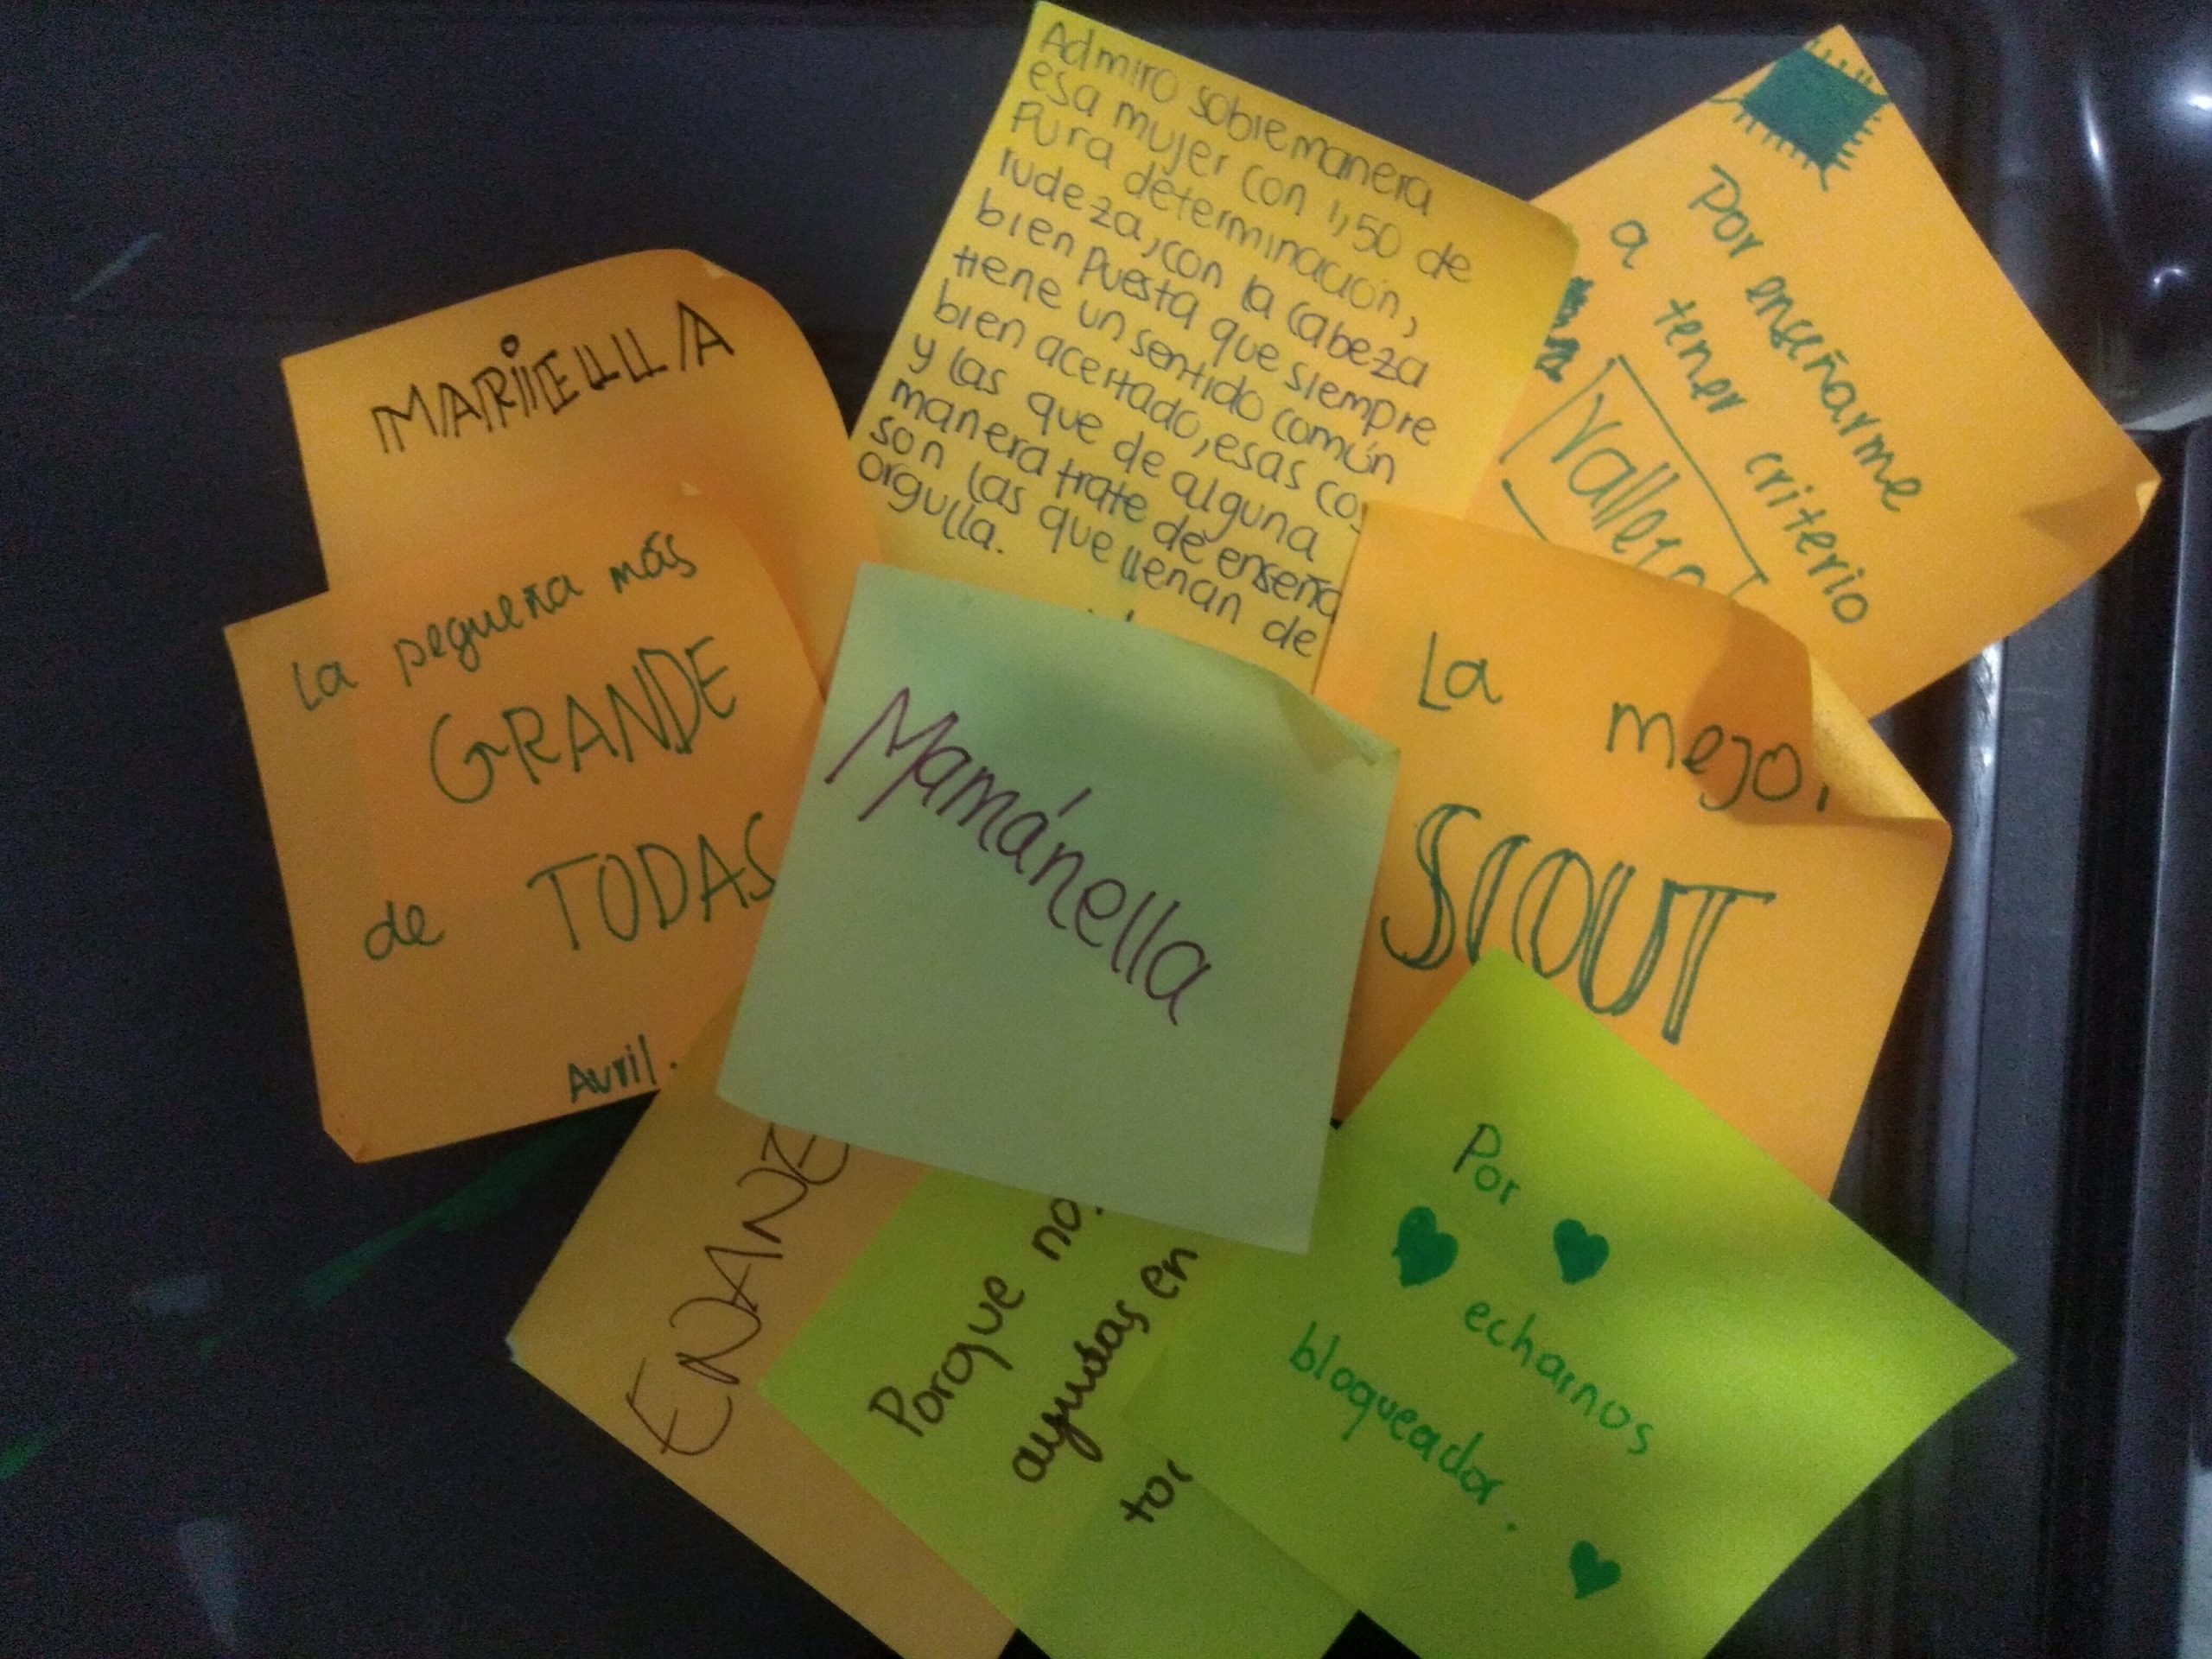 Admiro sobremanera
esa mujer con 1,50 de
Pura determinación,
rudeza, con la cabeza
bien puesta que siempre
tiene un sentido común
bien acertado, esas
y las que de alguna
manera trate de enseña
son las que llenan de
orgulla.
Por enseñarme
a tener criterio
MARIELLLA
La pequeña más
GRANDE
de TODAS
Avril.
Mamánella
La mejor
SCOUT
ENANE
Porque no
ayudas en
Por
echarnos
bloqueador.